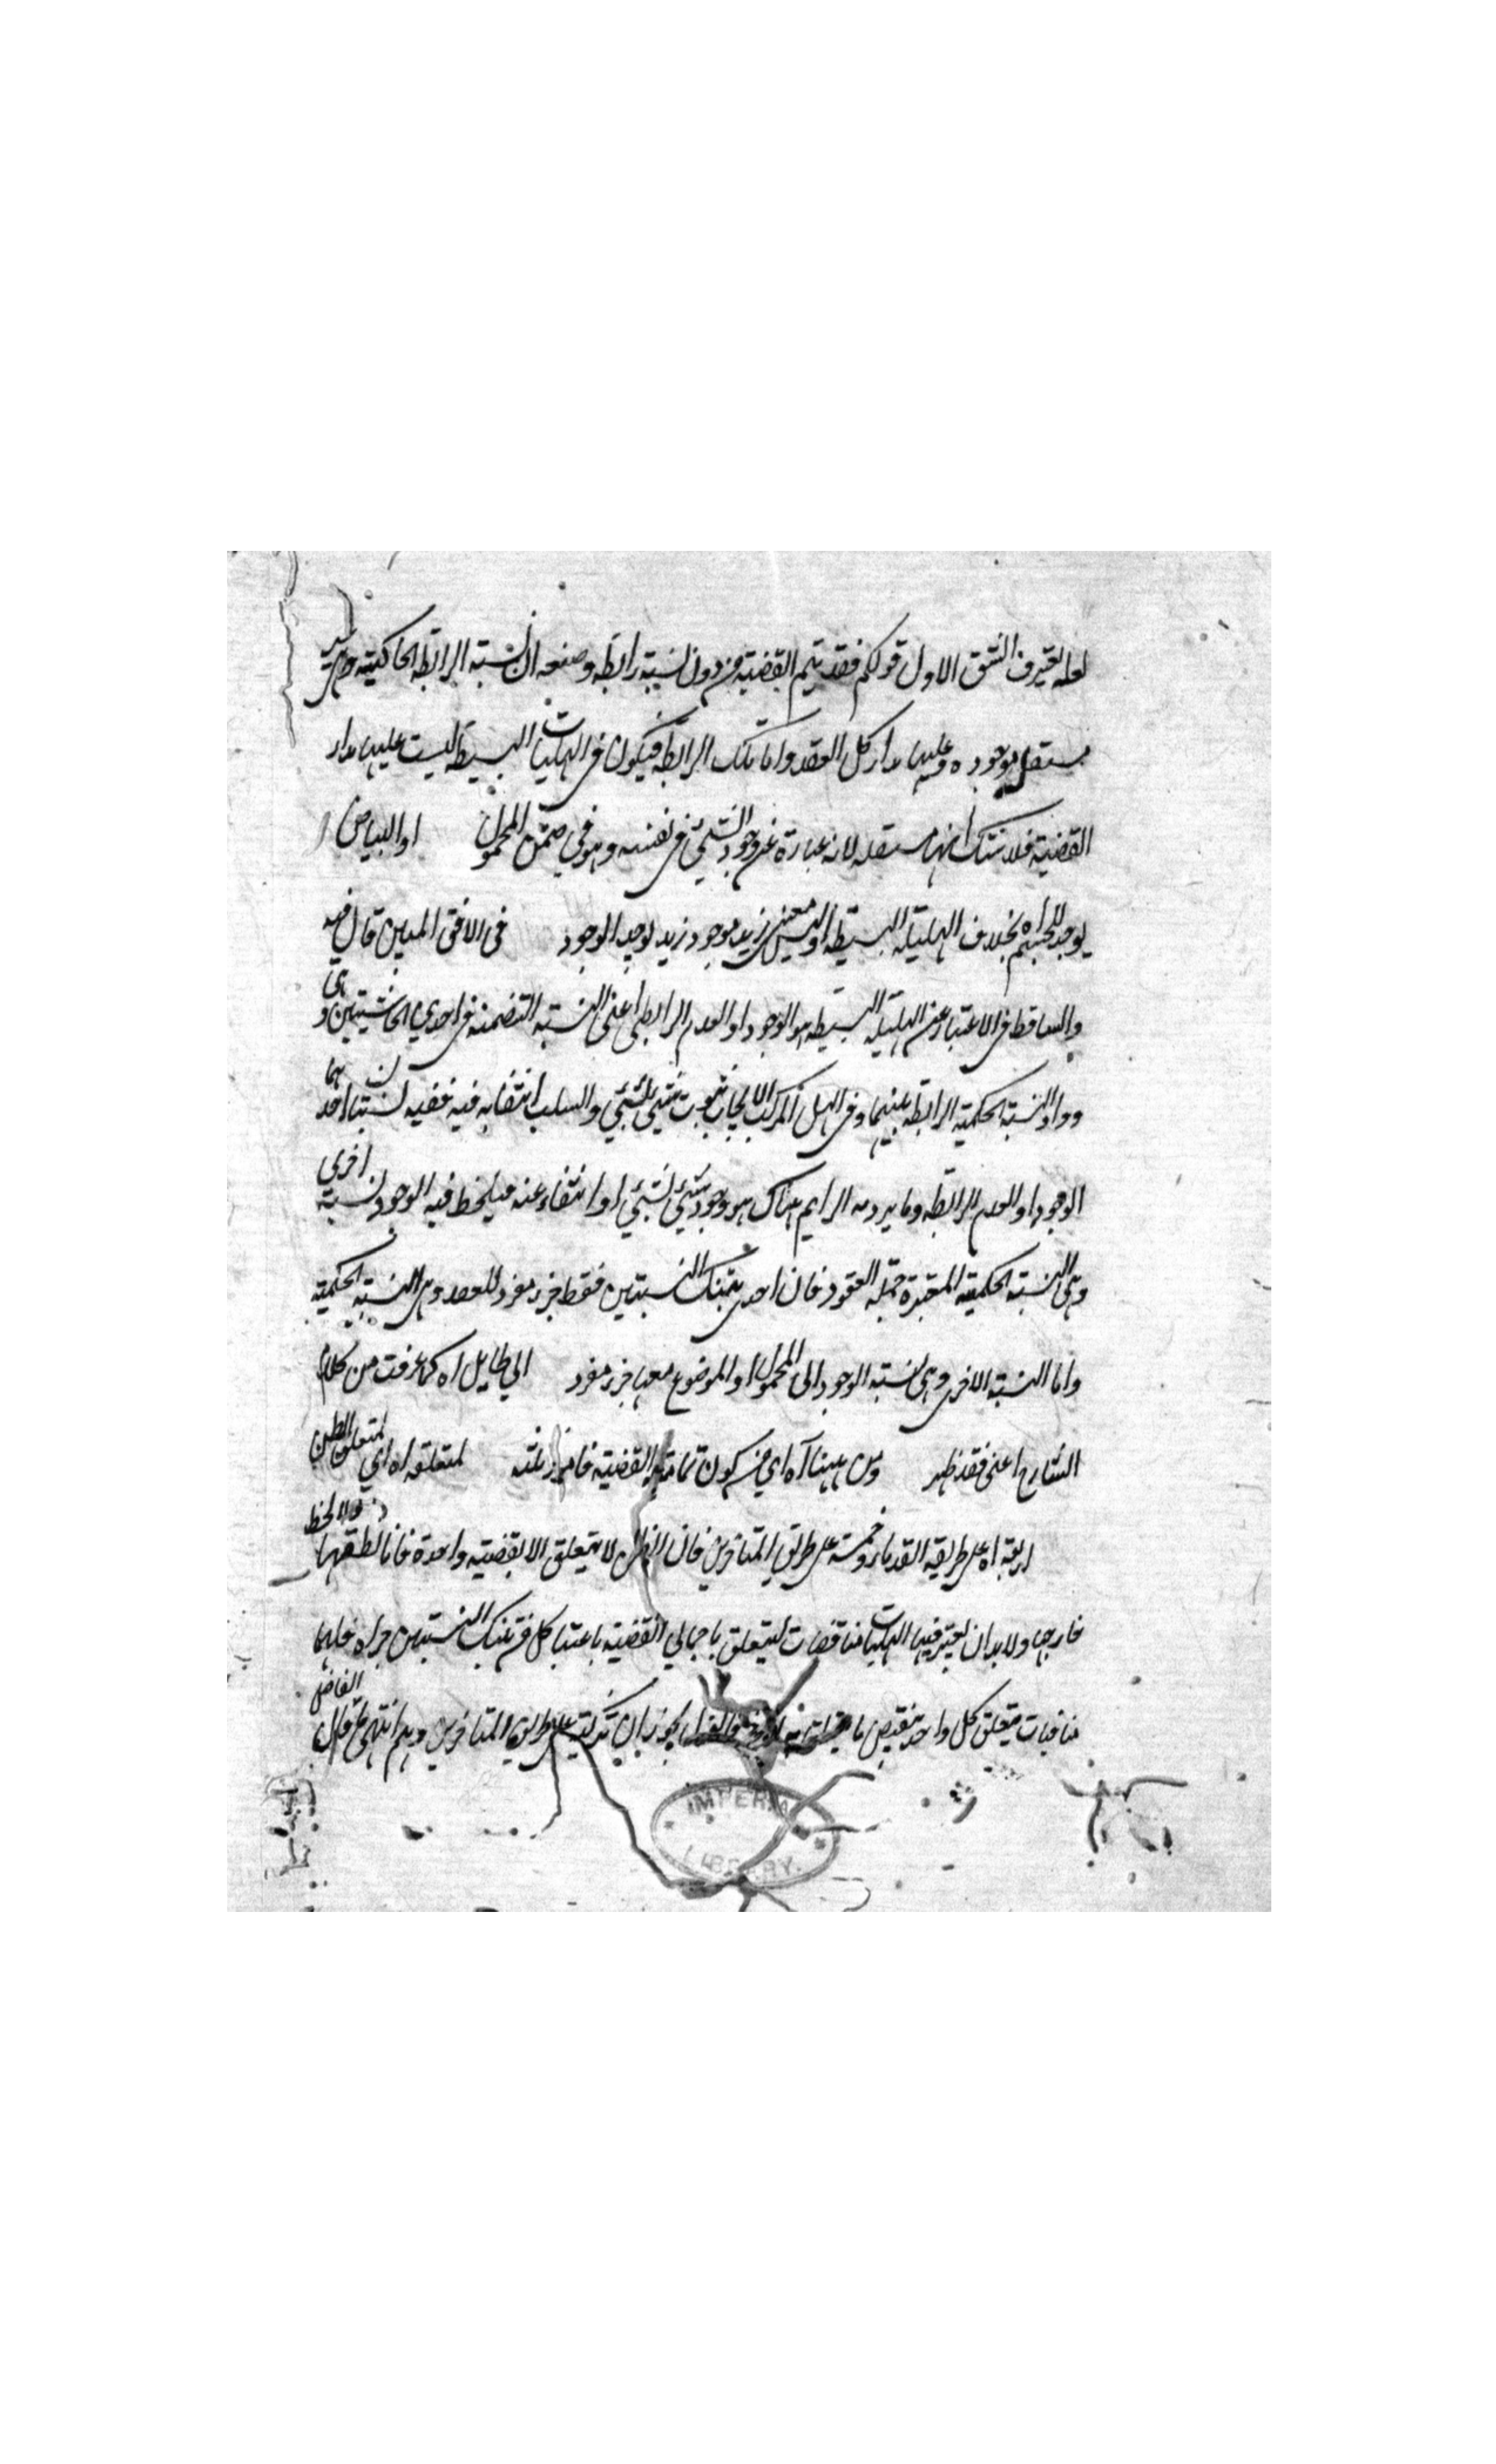 الشق الاول قولكم فقد يتم القضية من دون نسبة رابطة وصنعه ان النسبة الرابطة الحاكية هي غير
مستقل موجوده وعليها مدار كل العقد واما تلك الرابطة فيكون في الهليات البسيطة ليست عليها مدار
القضية فلا شك انها مستقله لانه عبارة عن وجود الشئ في نفسه وهو في ضمن المحمول او البياض
يوجد للجسم اه بخلاف الهلية البسيطة اذ ليس معنى زيد موجود زيد يوجد الوجود في الافق المبين قال فيه
والساقط في الاعتبار عن الهلية البسيطة هو الوجود او العدم الرابطي اعني النسبة المتضمنة في احدي الحاشيتين وهي
وراء النسبة الحكمية الرابطة بينهما وفي الهل المركب الايجاب ثبوت شئ لشئ والسلب انتفائه فيه ففيه نسبتان احدهما
الوجود او العدم الرابطة وما يرد مه الرايم هناك هو وجود شئ لشئ او انتفاء عنه فيلحظ فيه الوجود نسبة اخرى
وهي النسبة الحكمية المعتبرة جملة العقود فان احدى تينك النسبتين فقط جزء مفرد للعقد وهي النسبة الحكمية
واما النسبة الاخرى وهي نسبة الوجود الى المحمول او الموضوع معها جزء مفرد الي طايل اه كما عرفت من كلام
الشارح اعني فقد ظهر ومن ههنا آه اي من كون تمامية القضية فامور ثلثه لمتعلقه اه اي لمتعلق الظن
اربعة اه على طريقة القدماء وخمسة على طريق المتاخرين فان الظن لا يتعلق الا بقضية واحدة
خارجها ولا بد ان يعتبر فيها الهليات مناقضات ليتعلق باجمالي القضية باعتبار كل من تينك النسبتين
منافيات متعلق كل واحد نقيض ما يجوز ان على طريق المتاخرين وهم انتهى قال الفاضل
IMPERIAL
LIBRARY.